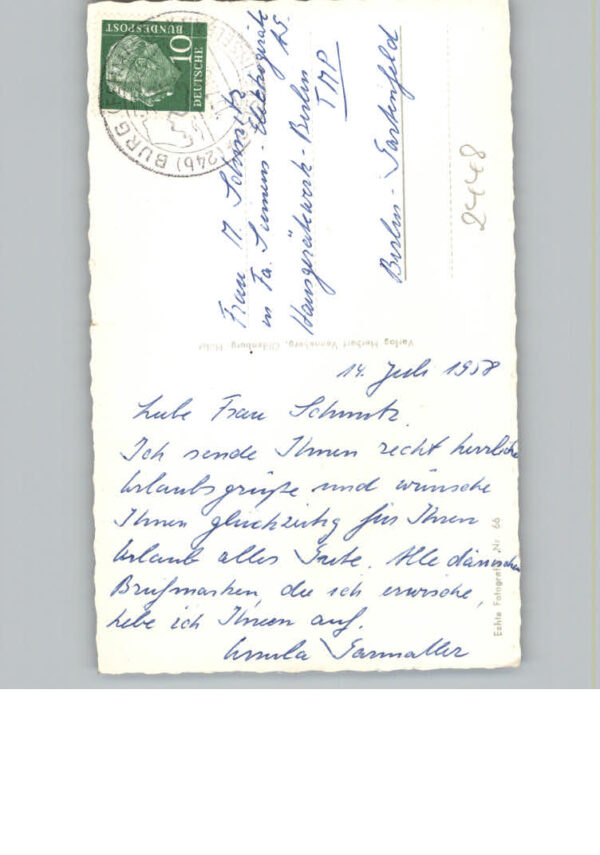 10
DEUTSCHE
BUNDESPOST
(24b) BURG
Frau M. Schmitz
in Fa. Siemens-Elektrogeräte
AG.
Hausgerätewerk-Berlin
TMP
Berlin-Gartenfeld
2448
Verlag Herbert Oldenburg Holst
14. Juli 1958
Liebe Frau Schmitz.
Ich sende Ihnen recht herzliche
Urlaubsgrüße und wünsche
Ihnen gleichzeitig für Ihren
Urlaub alles Gute. Alle dänischen
Briefmarken, die ich erwische,
hebe ich Ihnen auf.
Ursula
Echte Fotografie Nr. 66